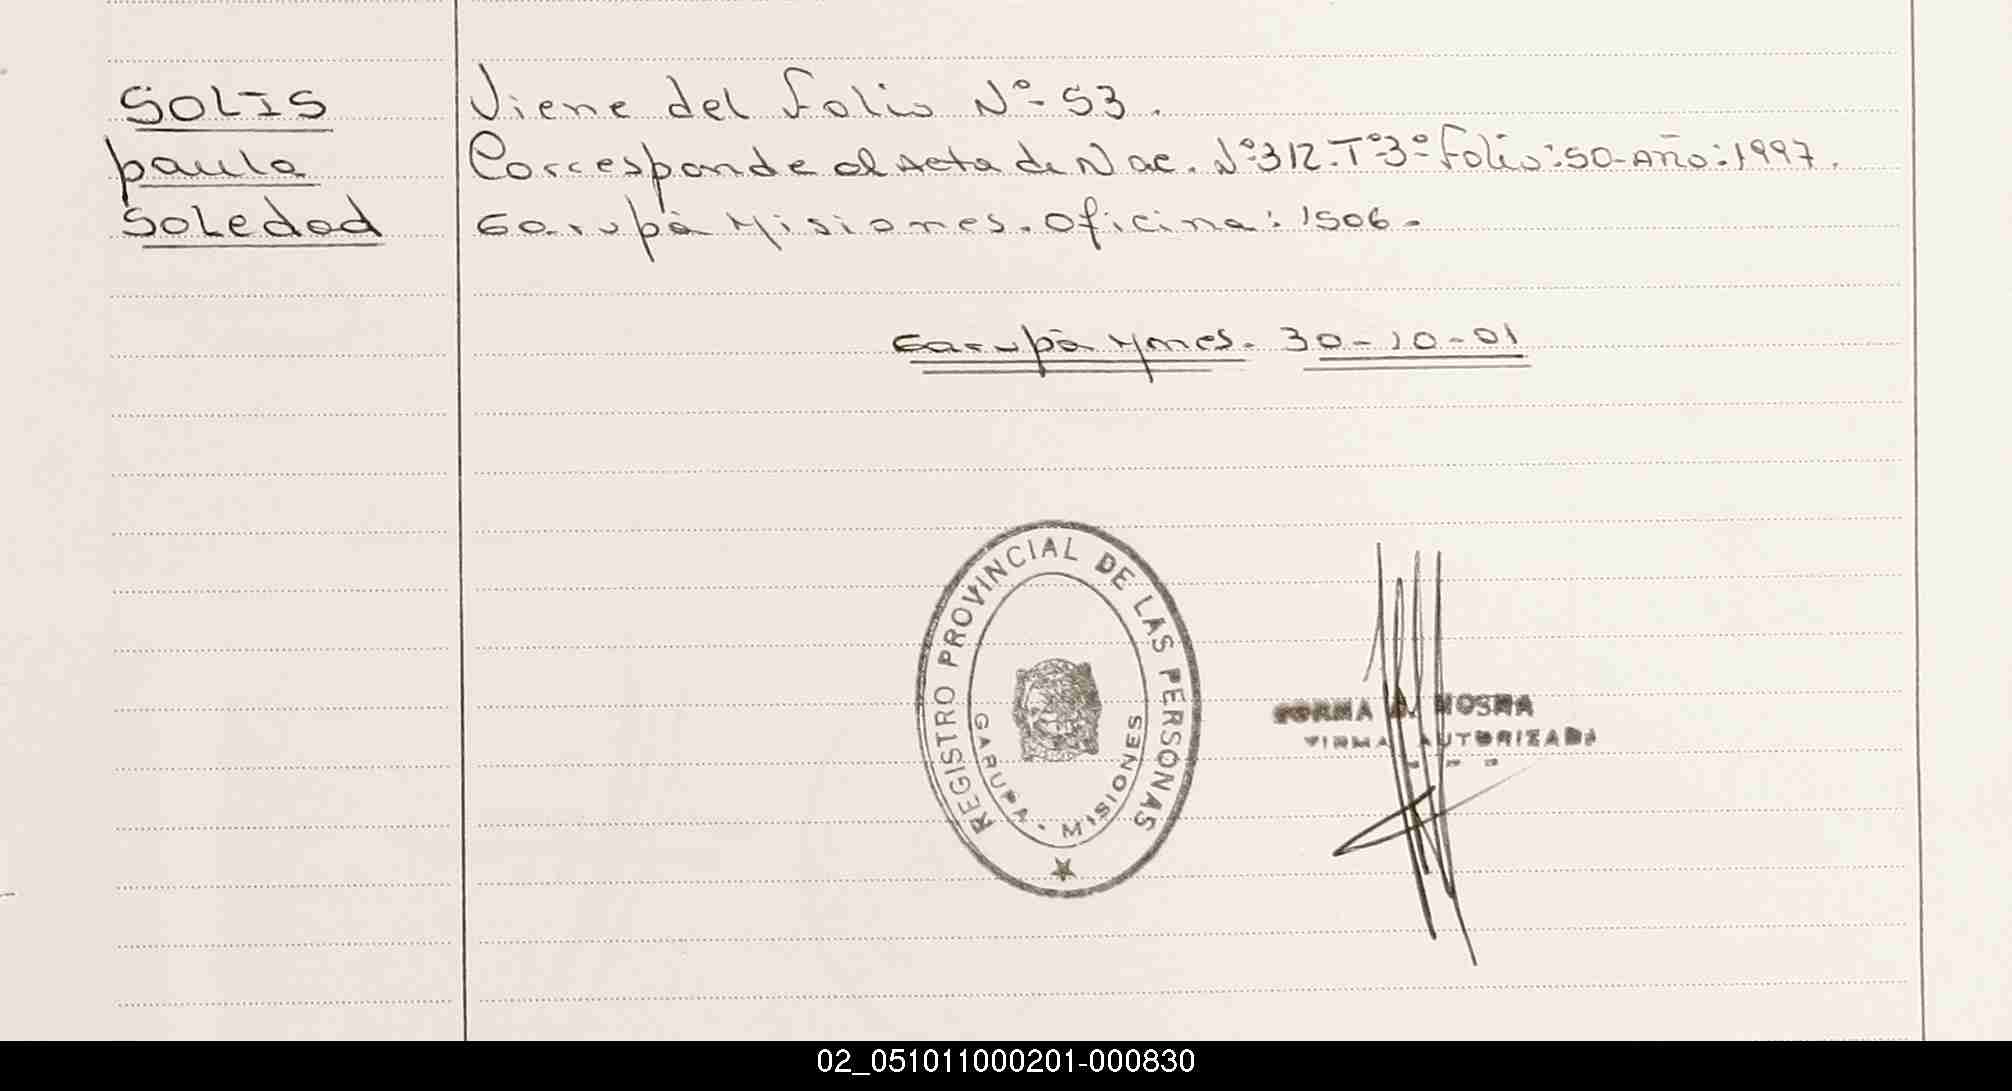 SOLIS
paula
Soledad
Viene del Folio Nº- 53.
Corresponde al Acta de Nac. Nº312.Tº3º Folio:50-Año:1997.
Garupá Misiones. Oficina: 1506-
Garupá Mnes. 30-10-01
REGISTRO PROVINCIAL DE LAS PERSONAS
GARUPA - MISIONES
FIRMA AUTORIZADA
02_051011000201-000830